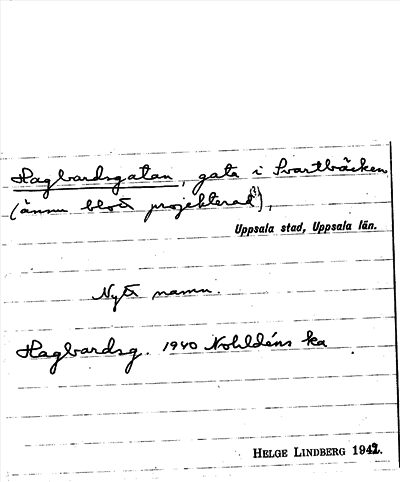 Hagbardsgatan, gata i Svartbäcken
(ännu blott projekterad?),
Uppsala stad, Uppsala län.
Nytt namn.
Hagbardsg. 1940 Nohldéns ka
HELGE LINDBERG 1942.